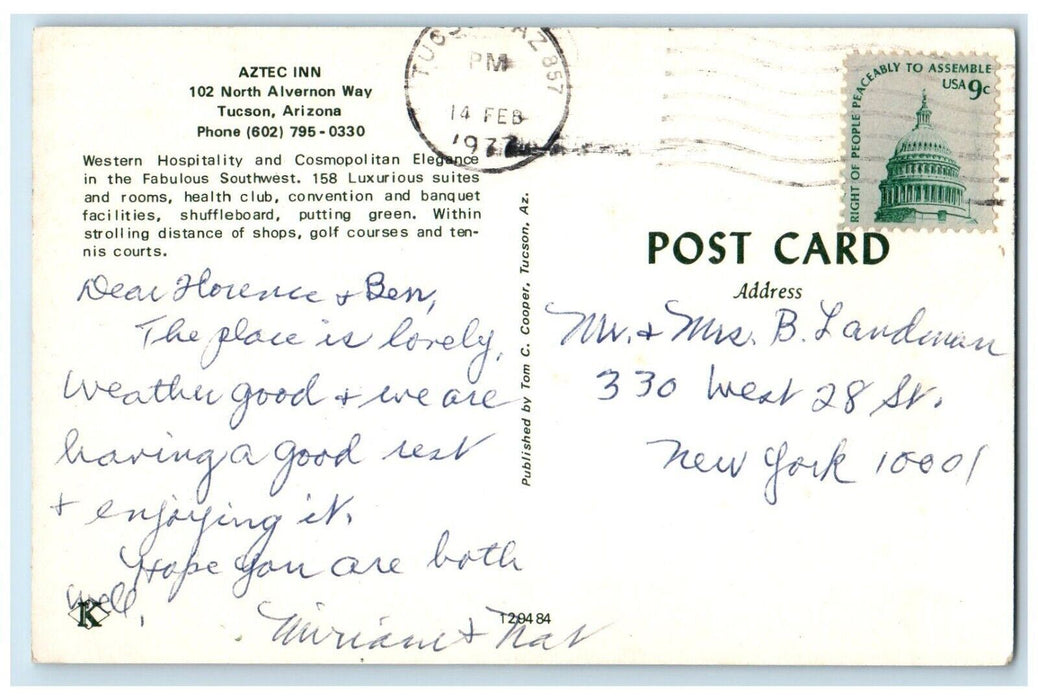 AZTEC INN
102 North Alvernon Way
Tucson, Arizona
Phone (602) 795-0330
Western Hospitality and Cosmopolitan Elegance
in the Fabulous Southwest. 158 Luxurious suites
and rooms, health club, convention and banquet
facilities, shuffleboard, putting green. Within
strolling distance of shops, golf courses and ten-
nis courts.
Dear Florence + Ben,
The place is lovely,
Weather good + we are
having a good rest
+ enjoying it.
Hope you are both
well,
Miriam + Nat
K
T29484
Published by Tom C. Cooper, Tucson, Az.
TUCSON AZ 857
PM
14 FEB
1977
RIGHT OF PEOPLE PEACEABLY TO ASSEMBLE
USA 9c
POST CARD
Address
Mr. + Mrs. B. Landman
330 West 28 St.
New York 10001